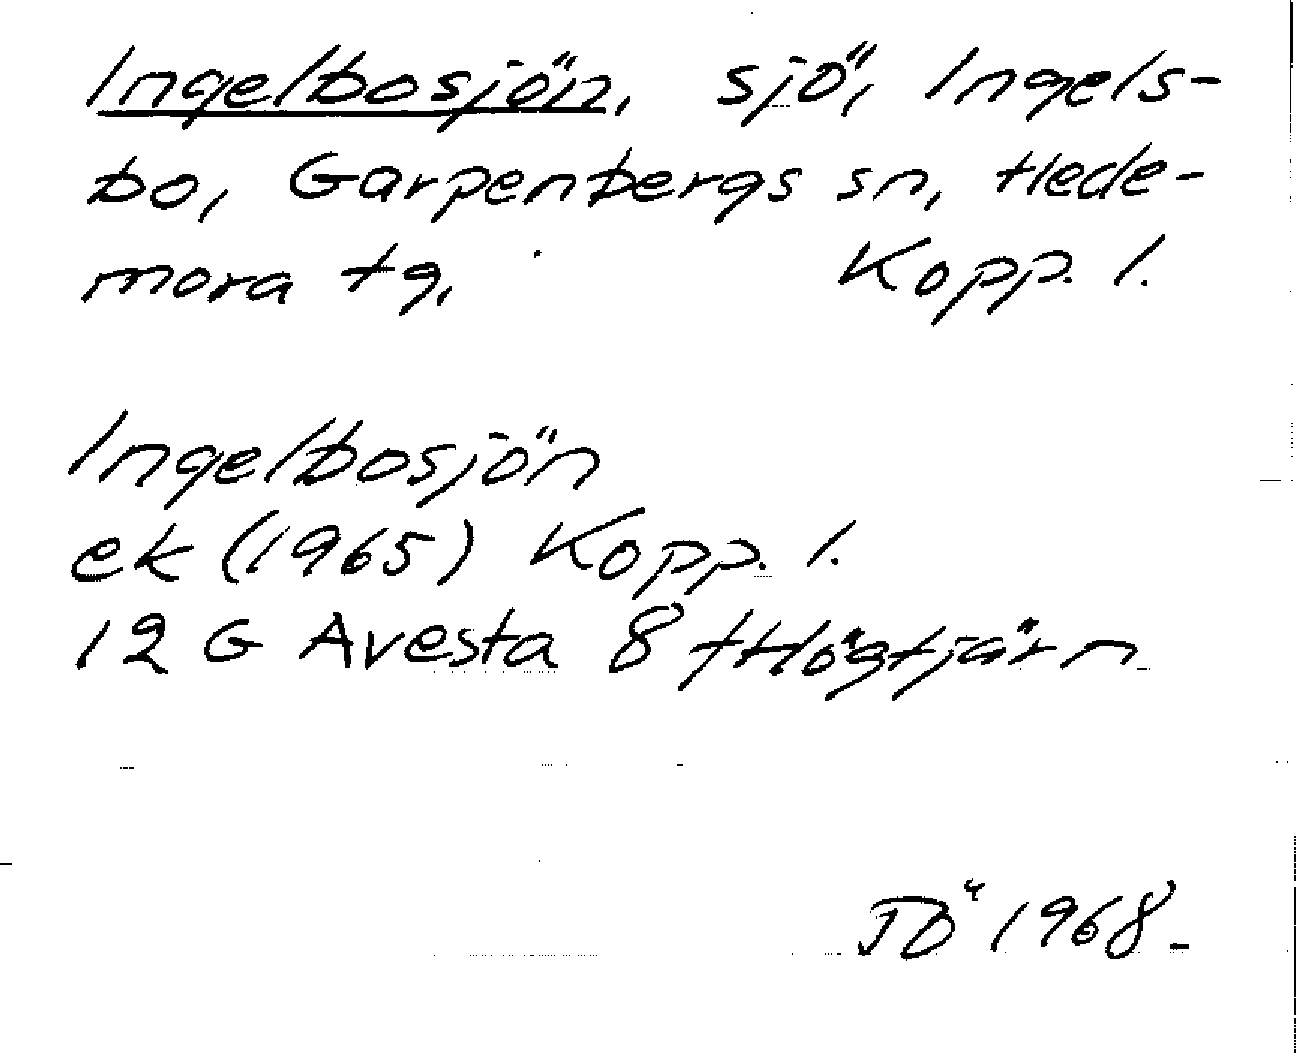 Ingelbosjön, sjö, Ingels-
bo, Garpenbergs sn, Hede-
mora tg, Kopp. l.
Ingelbosjön
ek (1965) Kopp. l.
12 G Avesta 8 f Högtjärn
JÖ 1968